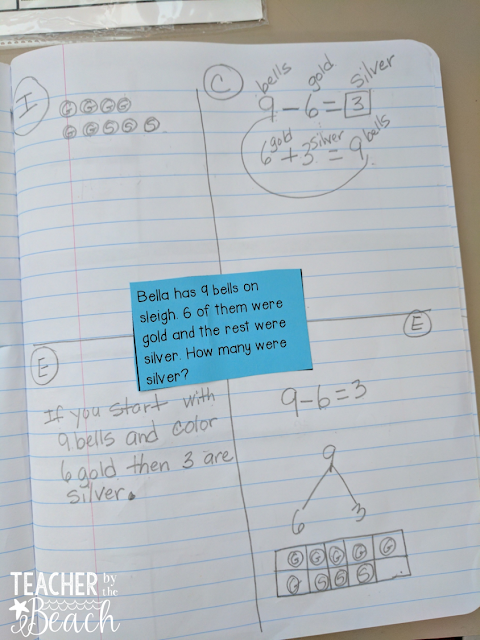 I
G G G G
G G S S S
C
bells gold silver
9 - 6 = 3
6 gold + 3 silver = 9 bells
Bella has 9 bells on
sleigh. 6 of them were
gold and the rest were
silver. How many were
silver?
E
If you start with
9 bells and color
6 gold then 3 are
silver.
E
9-6=3
9
6 3
G G G G G
G S S S
TEACHER by the Beach